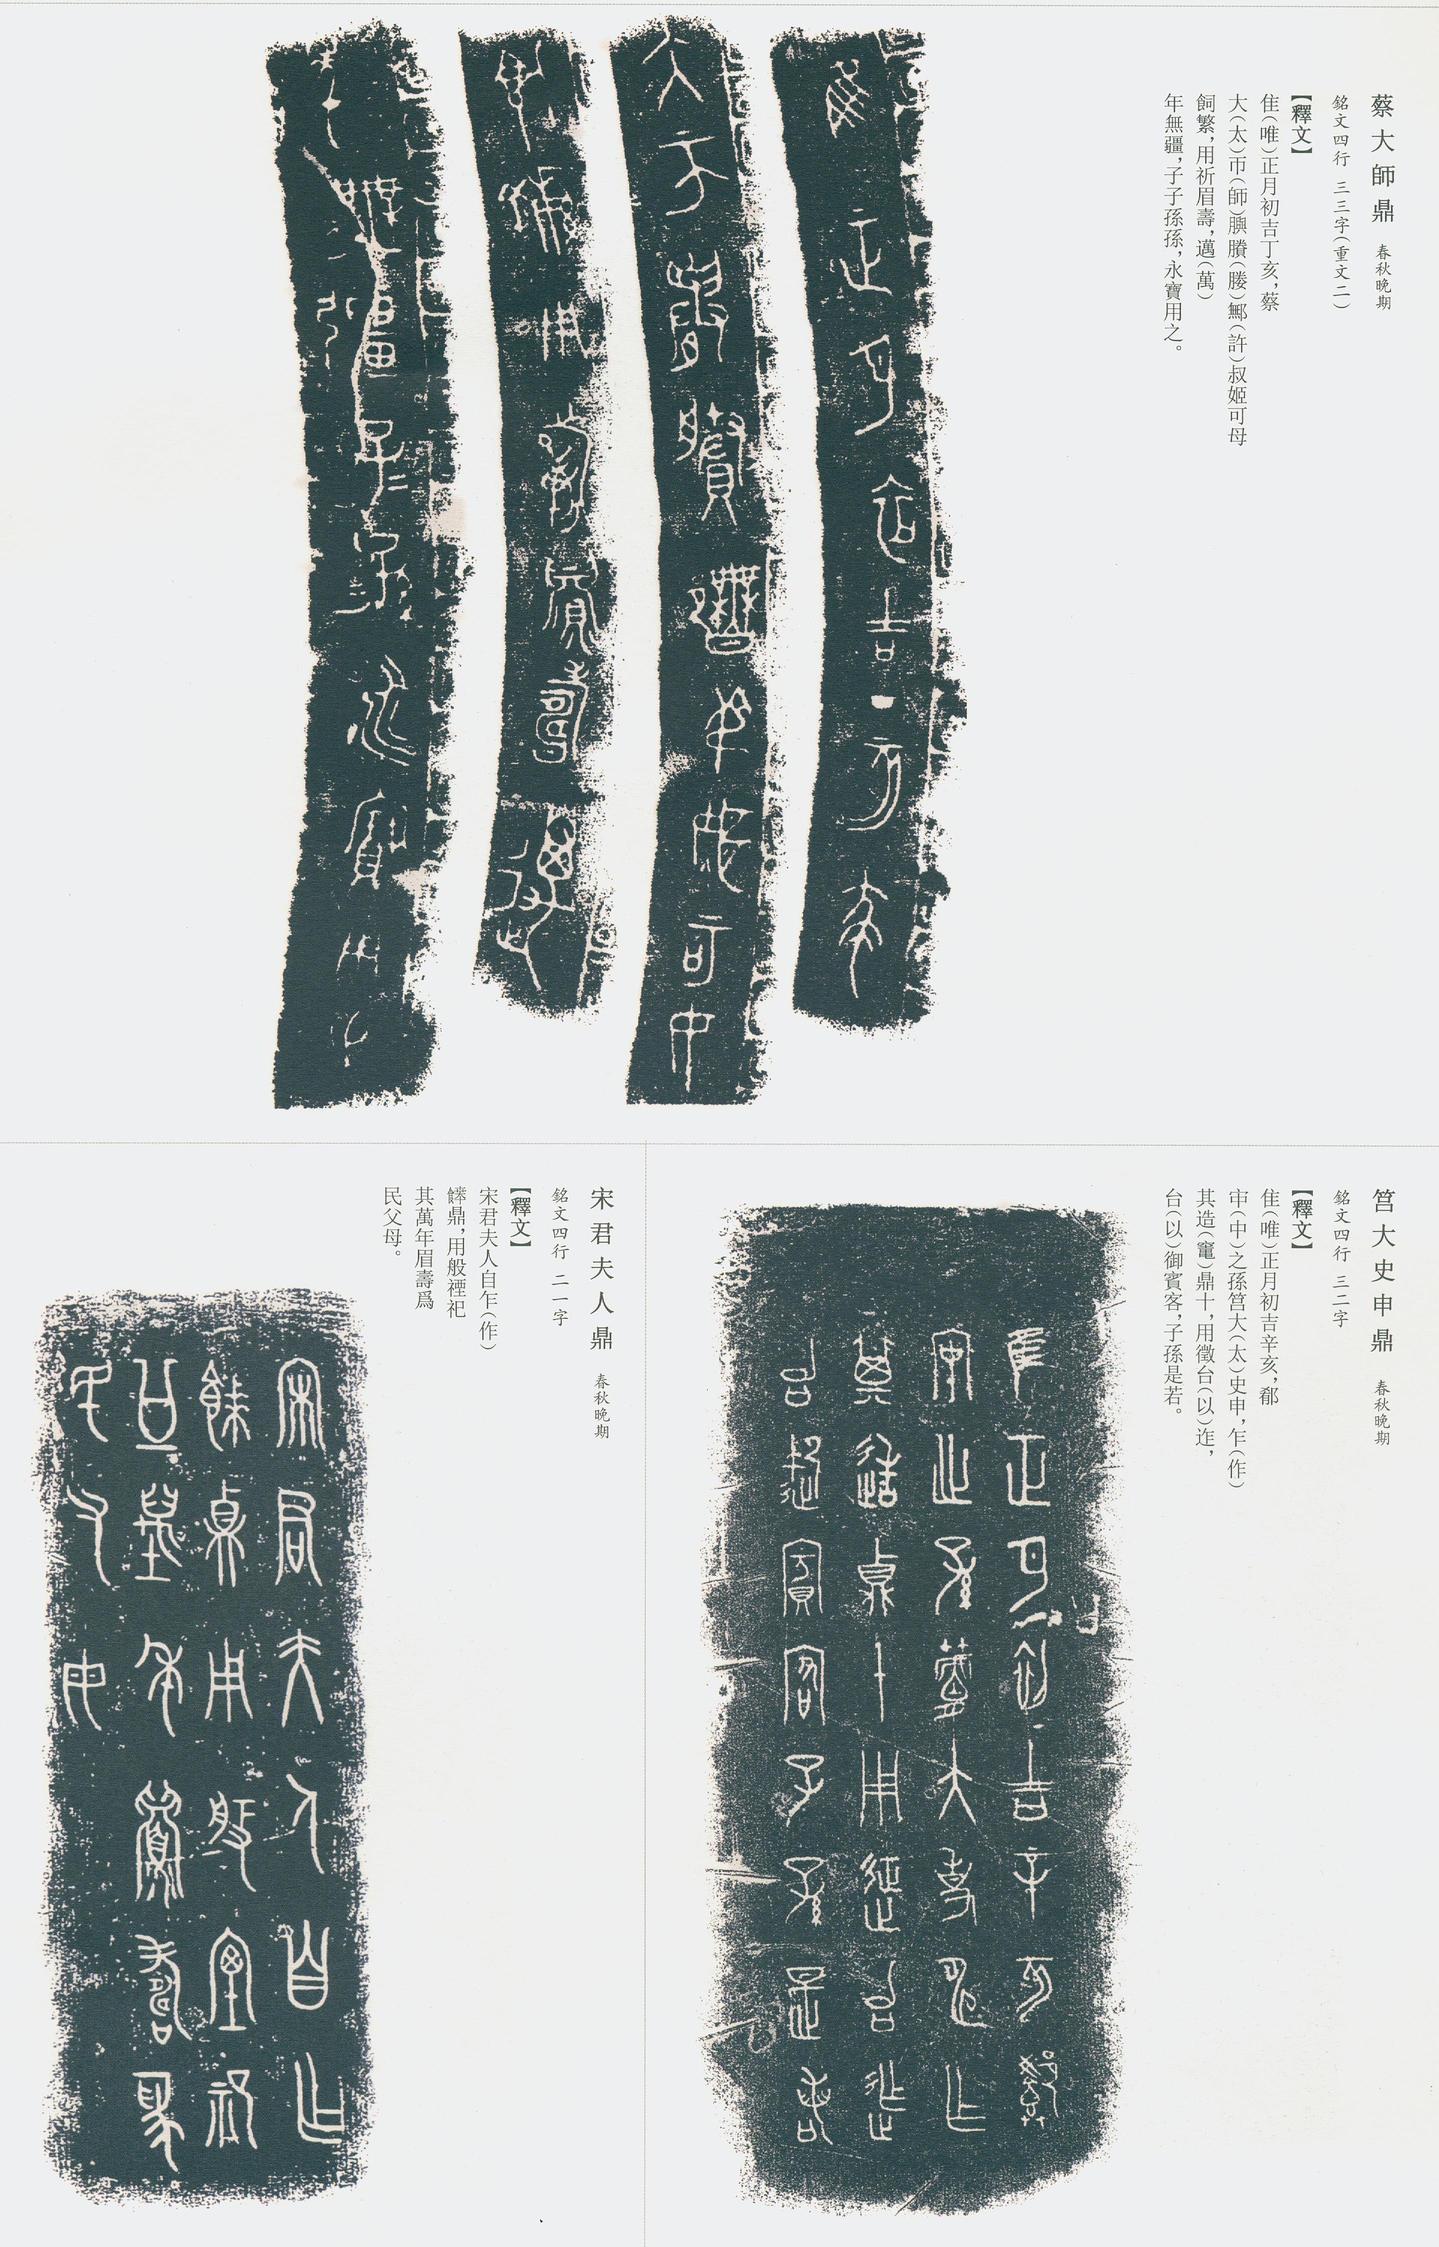 蔡大師鼎 春秋晚期
銘文四行 三三字(重文二)
【釋文】
隹(唯)正月初吉丁亥,蔡
大(太)帀(師)䐓賸(媵)鄦(許)叔姬可母
飼繁,用祈眉壽,邁(萬)
年無疆,子子孫孫,永寶用之。
筥大史申鼎 春秋晚期
銘文四行 三二字
【釋文】
隹(唯)正月初吉辛亥,鄀
𠁩(中)之孫筥大(太)史申,乍(作)
其造(竈)鼎十,用徵台(以)迮,
台(以)御賓客,子孫是若。
宋君夫人鼎 春秋晚期
銘文四行 二一字
【釋文】
宋君夫人自乍(作)
餴鼎,用般禋祀
其萬年眉壽爲
民父母。